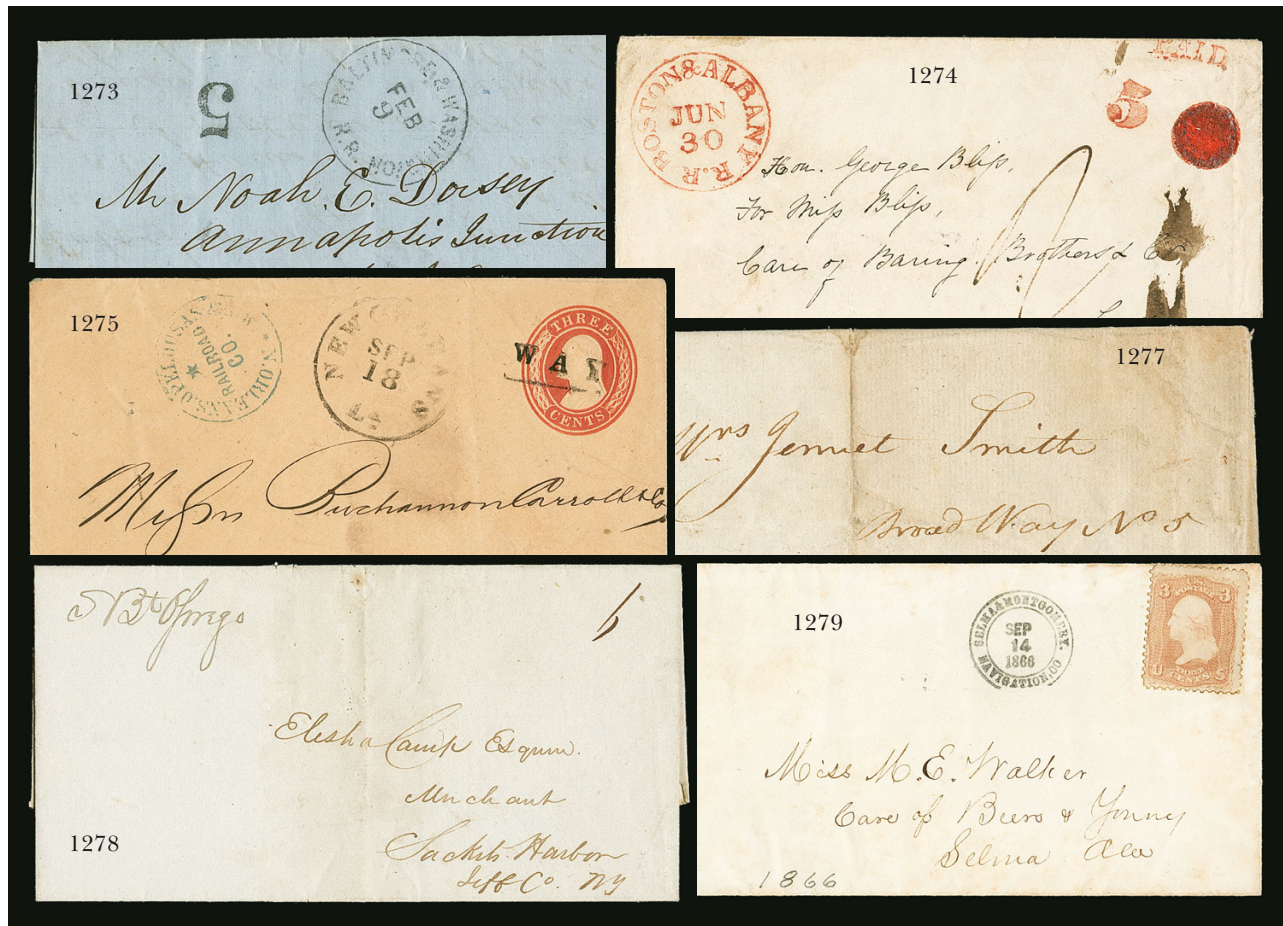 1273
5
BALTIMORE & WASHINGTON R.R.
FEB
9
Mr Noah. E. Dorsey
Annapolis Junction
1274
BOSTON & ALBANY R.R
JUN
30
PAID
5
Hon. George Bliss,
For Miss Bliss,
Care of Baring. Brothers & Co
1275
N. ORLEANS. OPELOUSAS
RAILROAD
CO.
NEW ORLEANS
SEP
18
LA
THREE
CENTS
WAY
Messrs Buchannon Carroll & Co
1277
Mrs Jennet Smith
Broad Way No 5
S Bt Oswego
6
Elisha Camp Esquire.
Merchant
Sackets Harbor
Jeff Co. NY
1278
1279
SELMA & MONTGOMERY.
NAVIGATION. CO
SEP
14
1866
3
3
U.S.
POSTAGE
CENTS
Miss M. E. Walker
Care of Beers & Young
Selma Ala
1866